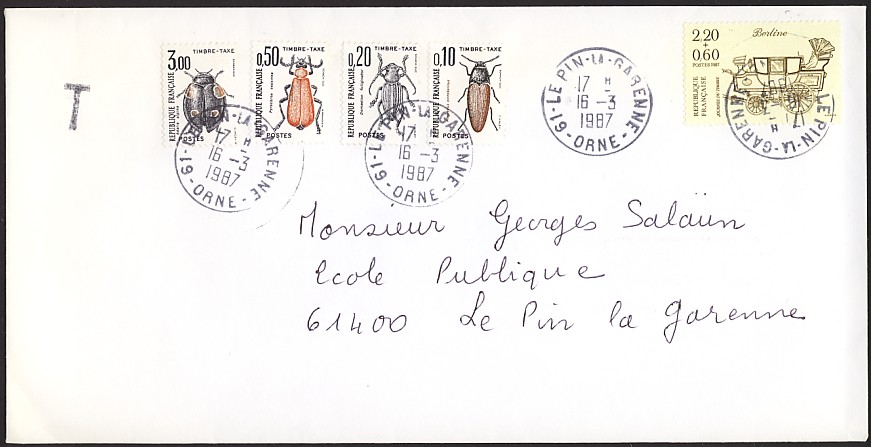 T
TIMBRE-TAXE
3,00
RÉPUBLIQUE FRANÇAISE
POSTES
TIMBRE-TAXE
0,50
RÉPUBLIQUE FRANÇAISE
POSTES
TIMBRE-TAXE
0,20
RÉPUBLIQUE FRANÇAISE
POSTES
TIMBRE-TAXE
0,10
RÉPUBLIQUE FRANÇAISE
POSTES
LE PIN-LA-GARENNE
17 H
16 -3
1987
61-ORNE-
LE PIN-LA-GARENNE
17 H
16 -3
1987
61-ORNE-
LE PIN-LA-GARENNE
17 H
16 -3
1987
61-ORNE-
2,20
+
0,60
POSTES 1987
Berline
RÉPUBLIQUE
FRANÇAISE
JOURNÉE DU TIMBRE
LE PIN-LA-GARENNE
Monsieur Georges Salaün
Ecole Publique
61400 Le Pin la Garenne